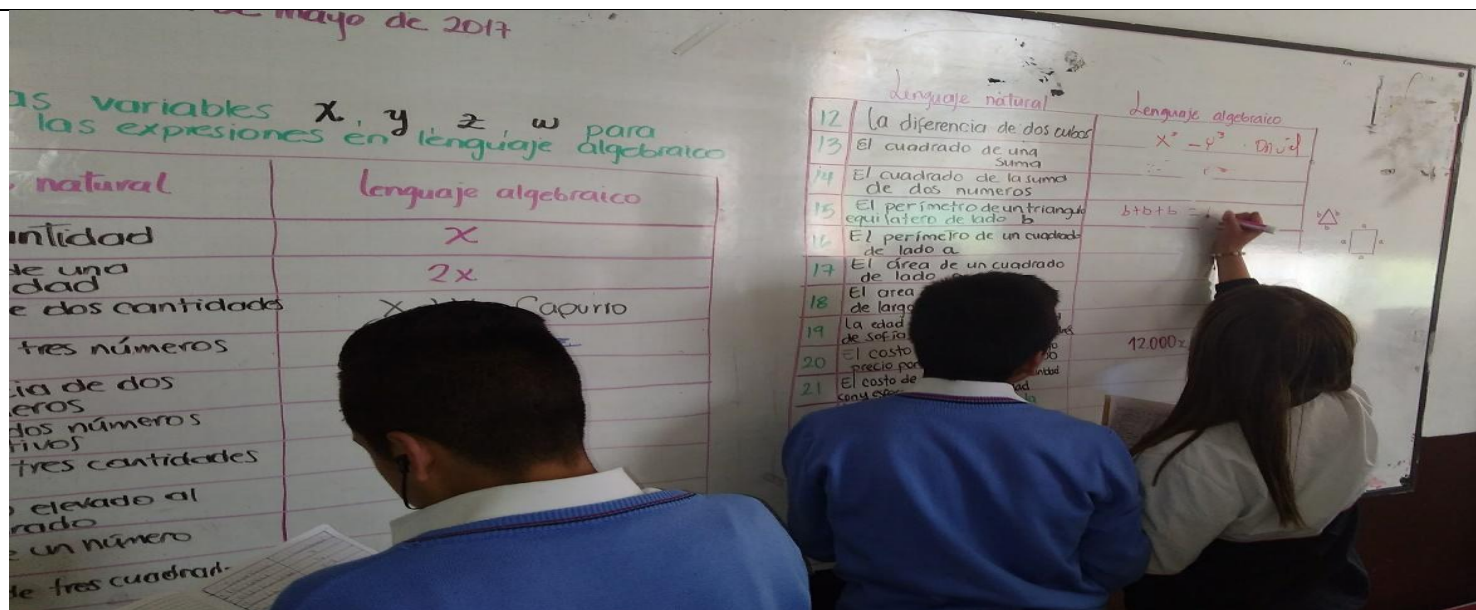 mayo de 2017
as variables x, y z w para
las expresiones en lenguaje algebraico
natural lenguaje algebraico
ntidad x
de una
dad 2x
e dos cantidades Capurro
tres números
cia de dos
eros
dos números
tivos
tres cantidades
elevado al
rado
un número
de tres cuadrad
Lenguaje natural Lenguaje algebraico
12 La diferencia de dos cubos
13 El cuadrado de una
suma
14 El cuadrado de la suma
de dos numeros
15 El perímetro de un triangulo
equilatero de lado b b+b+b =
16 El perímetro de un cuadrado
de lado a
17 El área de un cuadrado
de lado
18 El area
de largo
19 La edad
de sofia
20 El costo 12.000
precio por
21 El costo de
b b
b
a
a a
a